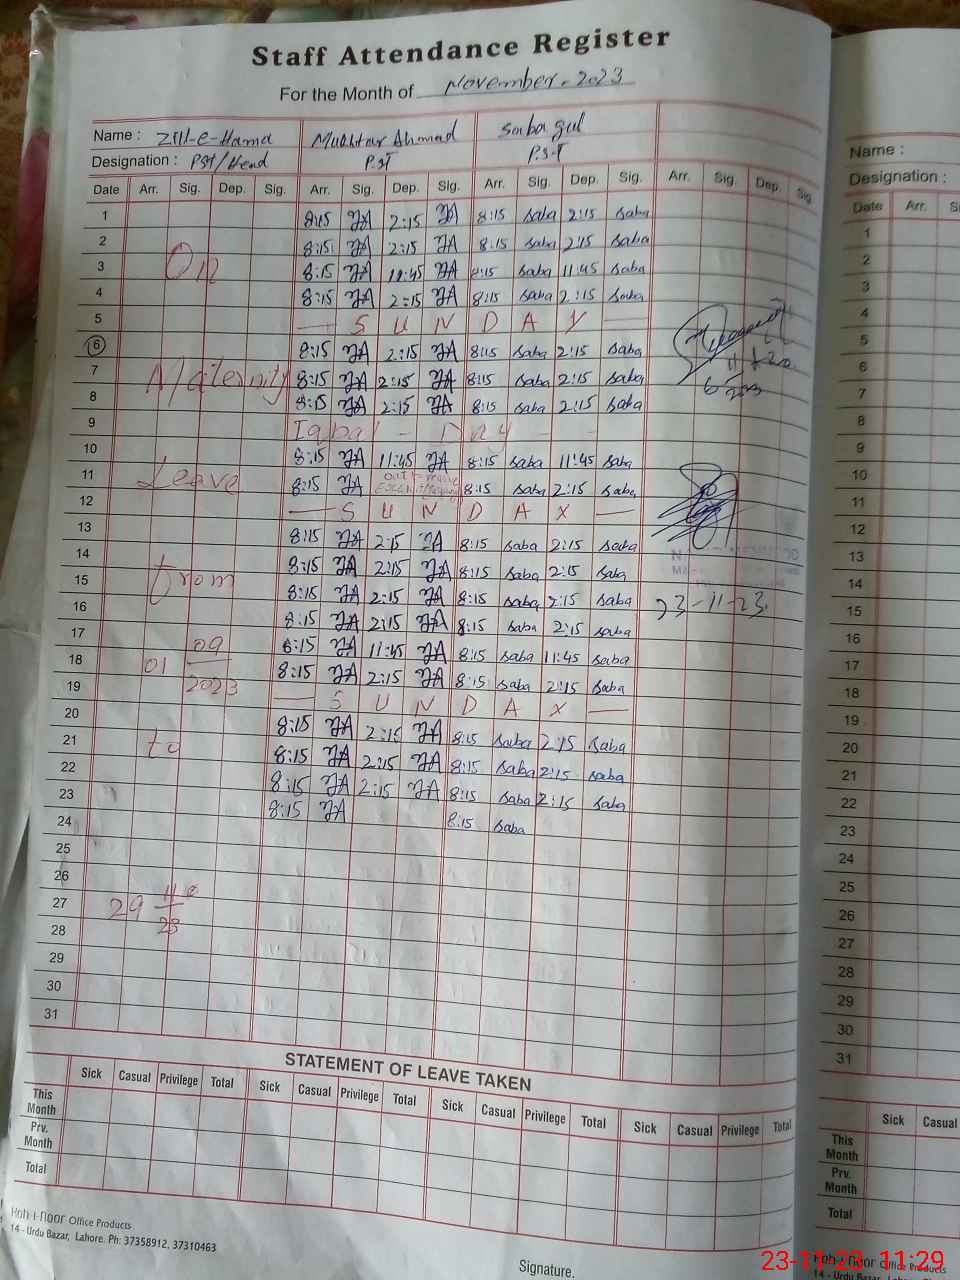 Staff Attendance Register
For the Month of November-2023
Name : Zill-e-Hama Mukhtar Ahmad Saba gul
Designation : PST/Head P.ST P.S.T
Date Arr. Sig. Dep. Sig. Arr. Sig. Dep. Sig. Arr. Sig. Dep. Sig. Arr. Sig. Dep. Sig.
1 8:15 2:15 8:15 Saba 2:15 Saba
2 On 8:15 2:15 8:15 Saba 2:15 Saba
3 8:15 11:45 8:15 Saba 11:45 Saba
4 8:15 2:15 8:15 Saba 2:15 Saba
5 S U N D A Y
6 8:15 2:15 8:15 Saba 2:15 Saba
7 Maternity 8:15 2:15 8:15 Saba 2:15 Saba
8 8:15 2:15 8:15 Saba 2:15 Saba
9 Iqbal - Day
10 8:15 11:45 8:15 Saba 11:45 Saba
11 Leave 8:15 8:15 Saba 2:15 Saba
12 S U N D A Y
13 8:15 2:15 8:15 Saba 2:15 Saba
14 8:15 2:15 8:15 Saba 2:15 Saba
15 from 8:15 2:15 8:15 Saba 2:15 Saba
16 8:15 2:15 8:15 Saba 2:15 Saba
17 8:15 11:45 8:15 Saba 11:45 Saba
18 01 09 2023 8:15 2:15 8:15 Saba 2:15 Saba
19 S U N D A Y
20 8:15 2:15 8:15 Saba 2:15 Saba
21 to 8:15 2:15 8:15 Saba 2:15 Saba
22 8:15 2:15 8:15 Saba 2:15 Saba
23 8:15 8:15 Saba
24
25
26
27 29 11 23
28
29
30
31
23-11-23
STATEMENT OF LEAVE TAKEN
Sick Casual Privilege Total Sick Casual Privilege Total Sick Casual Privilege Total Sick Casual Privilege Total
This Month
Prv. Month
Total
Koh-i-noor Office Products
14 - Urdu Bazar, Lahore. Ph: 37358912, 37310463
Signature.
Name :
Designation :
Date Arr.
1
2
3
4
5
6
7
8
9
10
11
12
13
14
15
16
17
18
19
20
21
22
23
24
25
26
27
28
29
30
31
Sick Casual
This Month
Prv. Month
Total
Koh-i-noor Office Products
14 - Urdu Bazar, Lahore
23-11-23 11:29